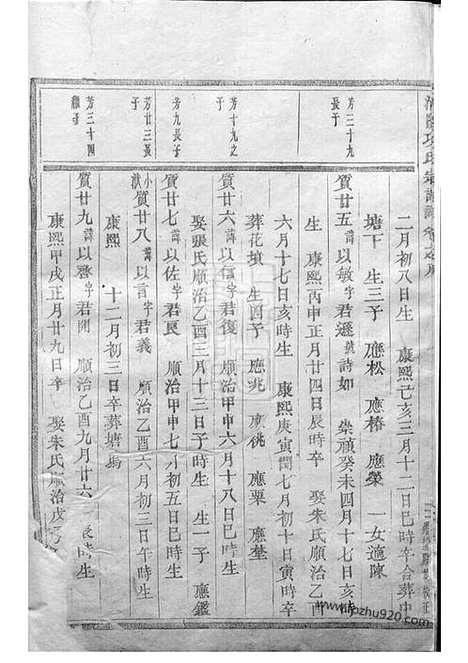 項氏宗譜
二月初八日生 康熙己亥三月十二日巳時卒合葬中
塘下 生三子 應松 應椿 應榮 一女適陳
芳三十九
長子
質廿五諱以敏字君遜 詩如 崇禎癸未四月十七日亥時
生 康熙丙申正月廿四日辰時卒 娶朱氏順治乙酉
六月十七日亥時生 康熙庚寅閏七月初十日寅時卒
葬花墳 生四子 應兆 應佻 應粟 應
芳十九之
子
質廿六諱以信字君復 順治甲申六月十八日巳時生
娶張氏順治乙酉三月十三日子時生 生一子 應鑑
芳九長子
質廿七諱以佐字君良 順治甲申七月初五日巳時生
芳廿三長
子
質廿八諱以言字君義 順治乙酉六月初三日午時生
小
康熙 十二月初三日卒葬塘塢
芳三十四
繼子
質廿九諱以 字君開 順治乙酉九月廿六 辰時生
康熙甲戌正月廿九日卒 娶朱氏順治戊子
zhu920.com